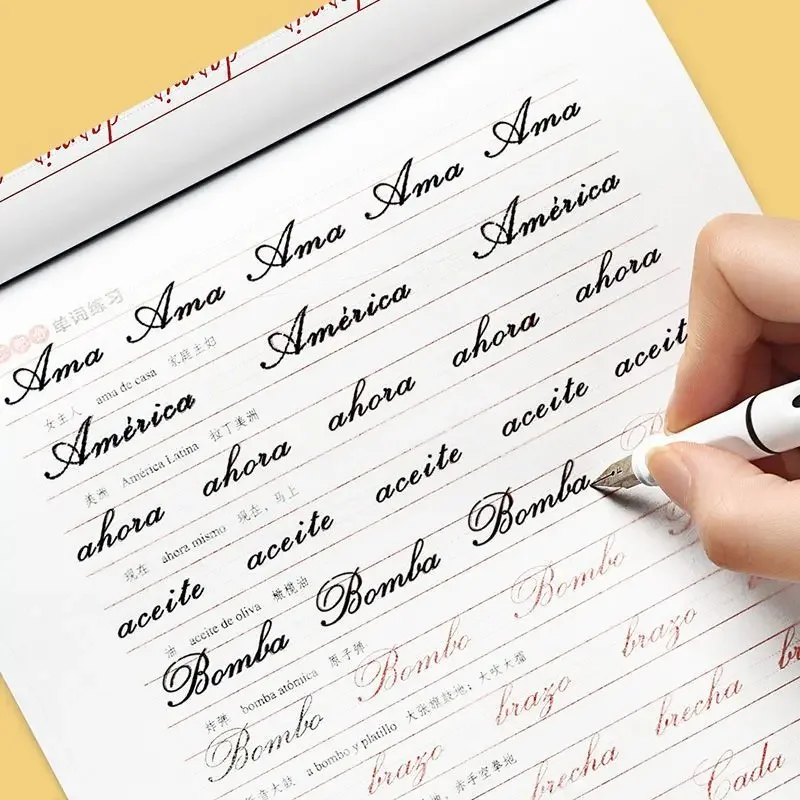 单词练习
Ama Ama Ama Ama Ama
女主人 ama de casa 家庭主妇
América América América
美洲 América Latina 拉丁美洲
ahora ahora ahora ahora ahora
现在 ahora mismo 现在，马上
aceite aceite aceite aceite aceit
油 aceite de oliva 橄榄油
Bomba Bomba Bomba
炸弹 bomba atómica 原子弹
Bombo Bombo Bombo
低音大鼓 a bombo y platillo 大张旗鼓地；大吹大擂
brazo brazo brazo
地，赤手空拳地
brecha brecha br
Cada